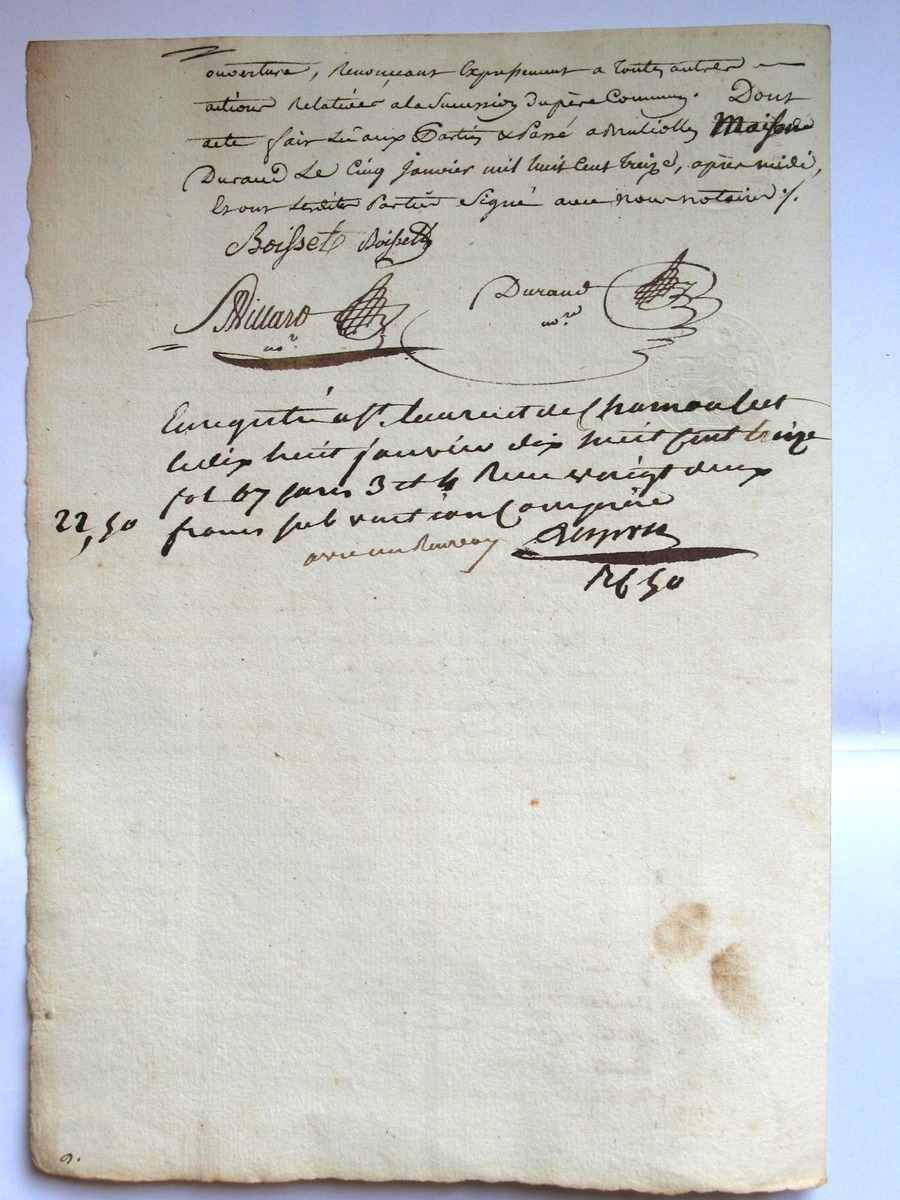 ouverture, Renonceant Expressement a toutes autres
actions Relatives a la Succession du père Commun. Dont
acte fait Lû aux Parties & Passé a Maison de
Durand Le Cinq Janvier mil huit Cent treize, après midi,
Et ont lesdites Parties Signé avec nous notaires ./.
Boisset Boisset
Millard Durand
no.re no.re
Enregistré a St. laurent de Chamousset
le dix huit janvier dix huit Cent treize
fol 67 3 et 4 Reçu vingt deux
22,50 francs subvention Comprise
avec un Renvoy
9.